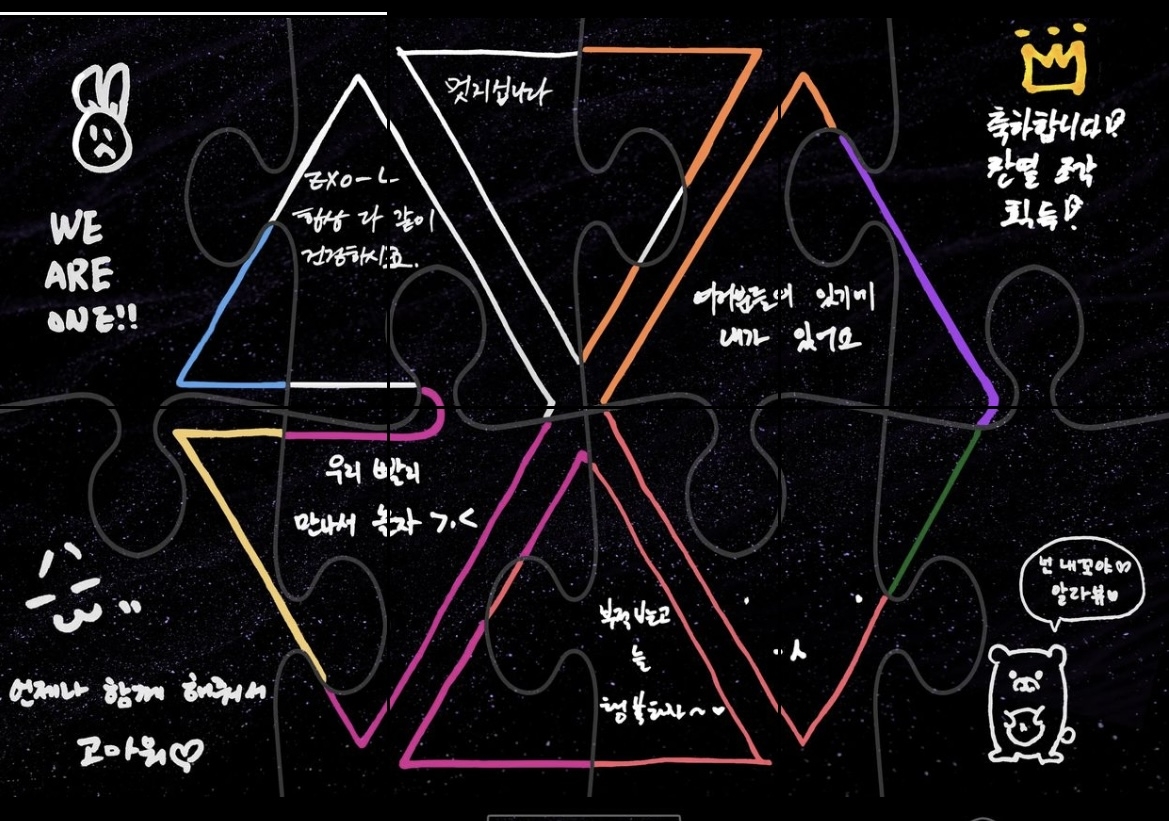 멋지십니다
WE
ARE
ONE!!
EXO-L
항상 다 같이
건강하시죠.
축하합니다!
찬열 조각
획득!
여러분들이 있기에
내가 있어요
우리 빨리
만나서 놀자 >.<
언제나 함께 해줘서
고마워♡
늘
행복하자~♥
넌 내꼬야♡
알라뷰♥